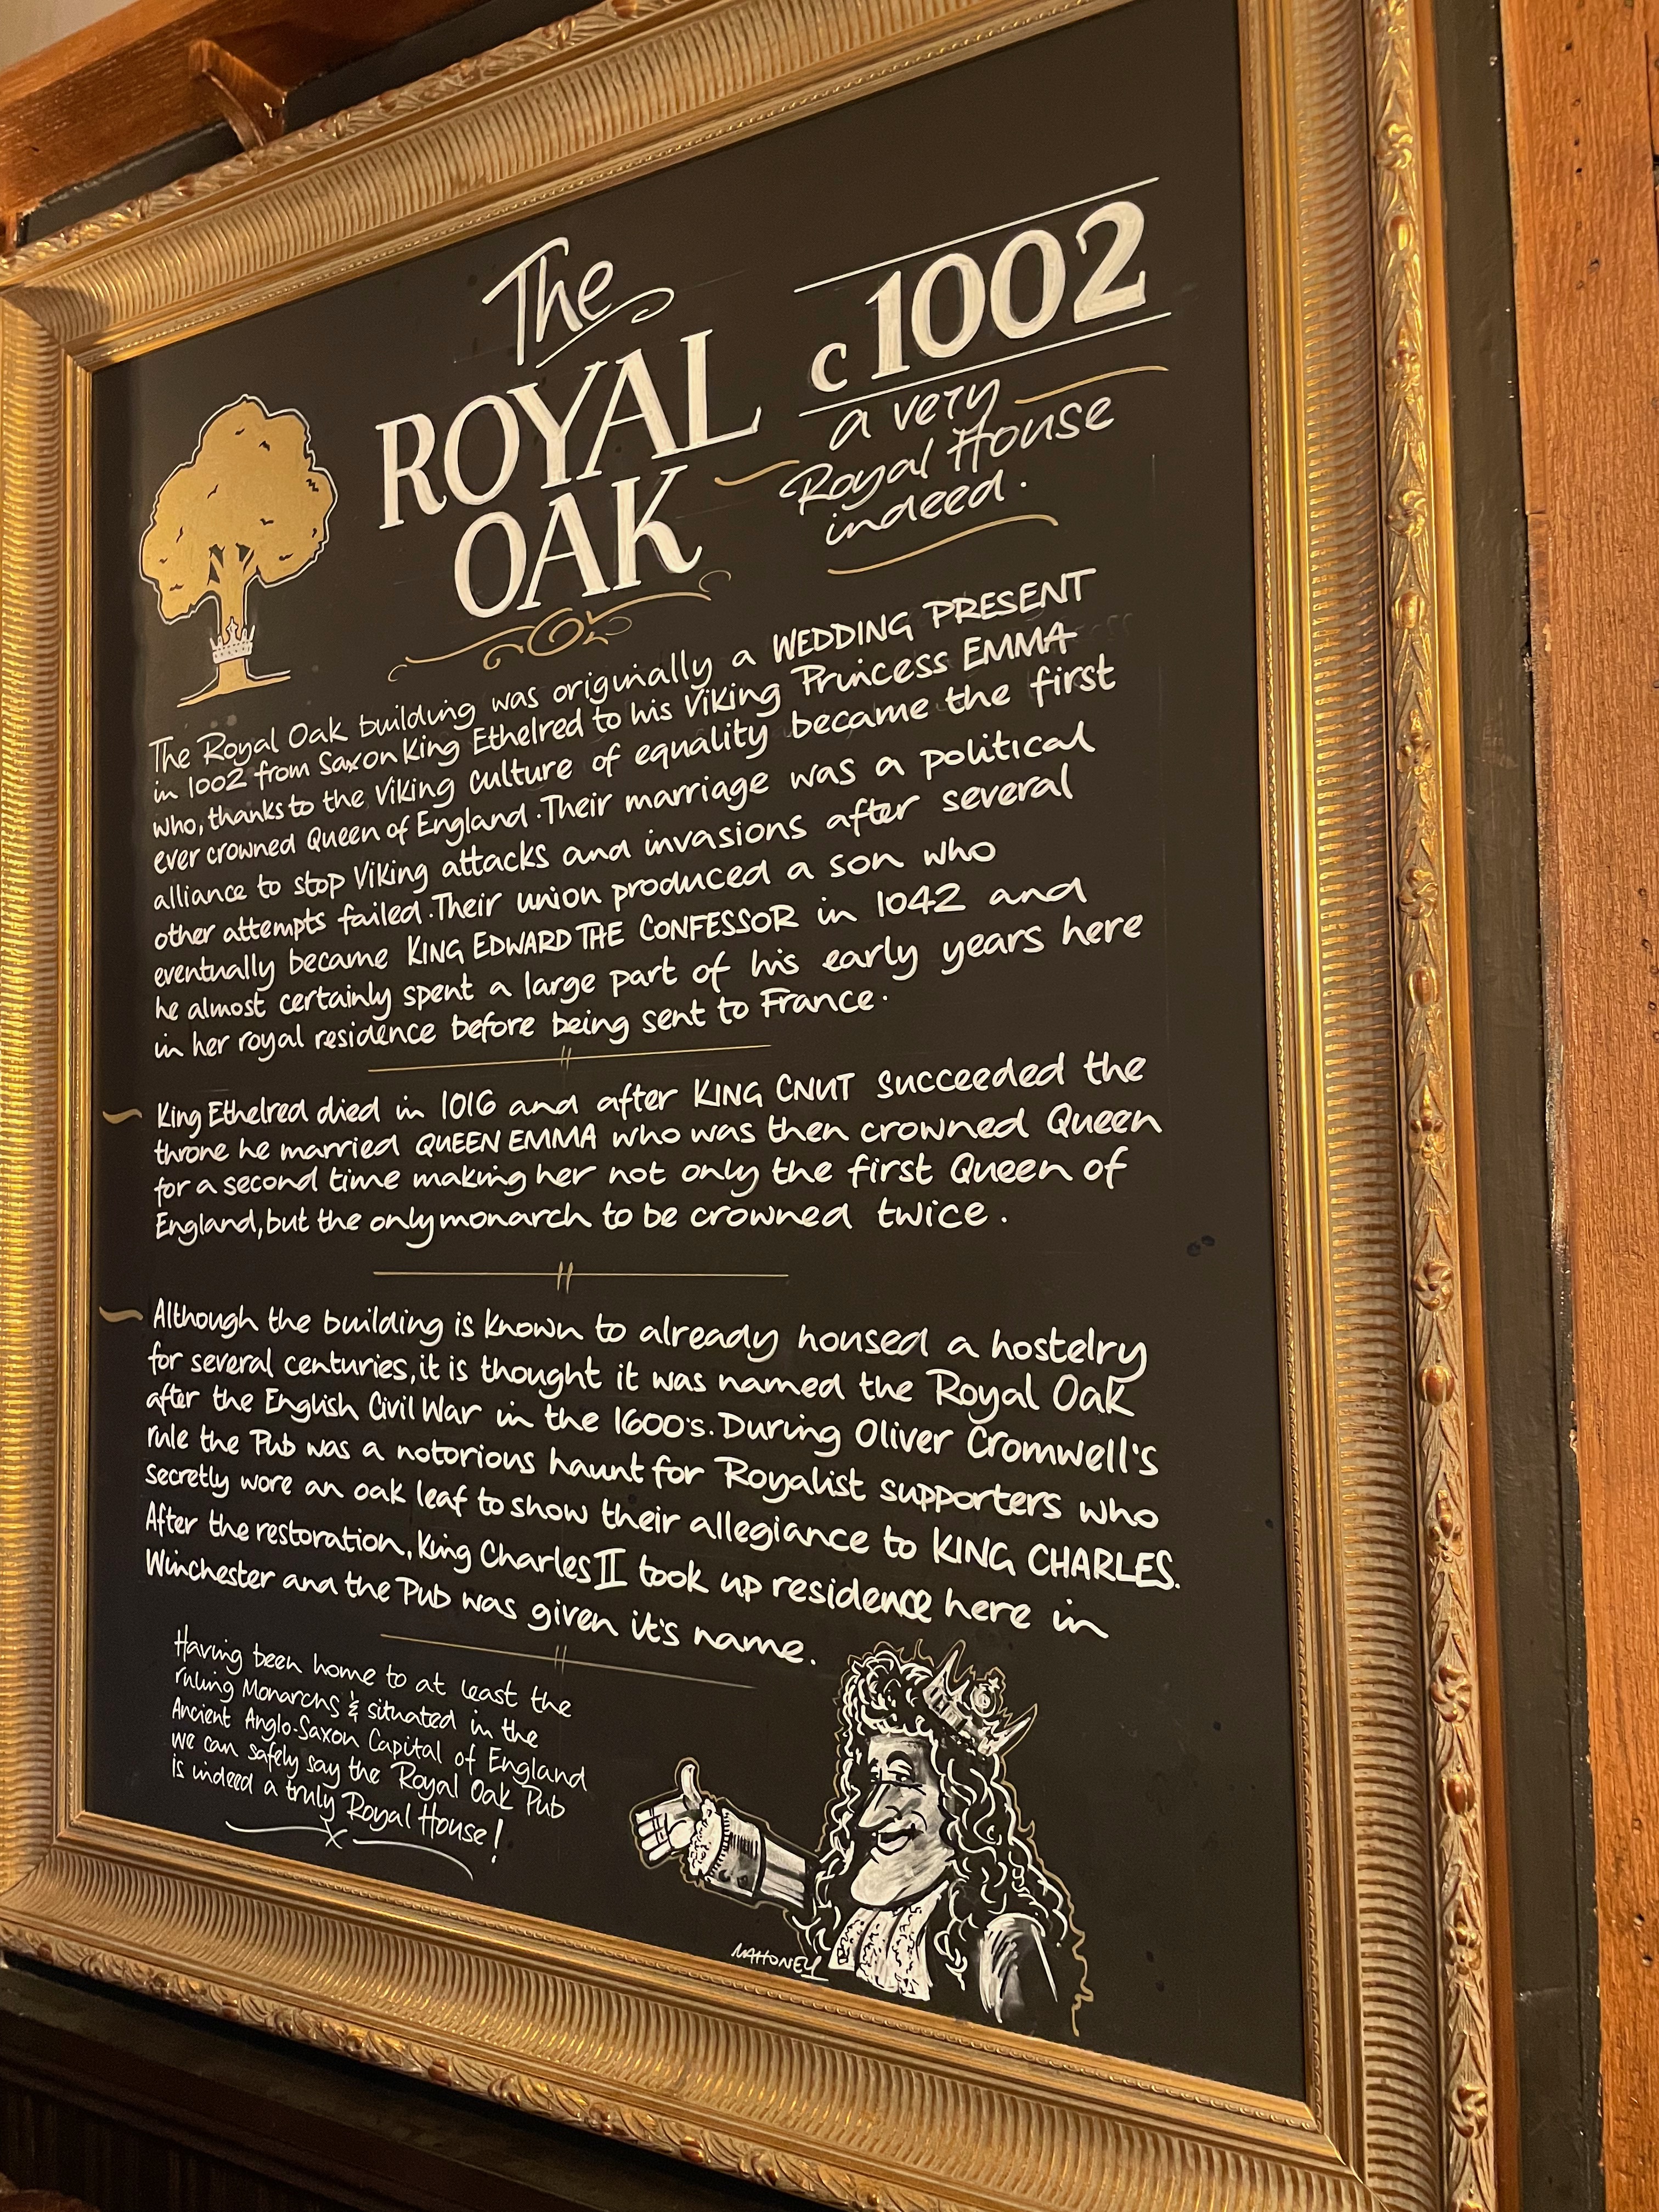 The
ROYAL
OAK
c1002
a very
Royal House
indeed.
The Royal Oak building was originally a WEDDING PRESENT
in 1002 from Saxon King Ethelred to his Viking Princess EMMA
who, thanks to the Viking culture of equality became the first
ever crowned Queen of England. Their marriage was a political
alliance to stop Viking attacks and invasions after several
other attempts failed. Their union produced a son who
eventually became KING EDWARD THE CONFESSOR in 1042 and
he almost certainly spent a large part of his early years here
in her royal residence before being sent to France.
King Ethelred died in 1016 and after KING CNUT succeeded the
throne he married QUEEN EMMA who was then crowned Queen
for a second time making her not only the first Queen of
England, but the only monarch to be crowned twice.
Although the building is known to already housed a hostelry
for several centuries, it is thought it was named the Royal Oak
after the English Civil War in the 1600's. During Oliver Cromwell's
rule the Pub was a notorious haunt for Royalist supporters who
secretly wore an oak leaf to show their allegiance to KING CHARLES.
After the restoration, King Charles II took up residence here in
Winchester and the Pub was given it's name.
Having been home to at least the
ruling Monarchs & situated in the
Ancient Anglo-Saxon Capital of England
we can safely say the Royal Oak Pub
is indeed a truly Royal House!
MAHONEY